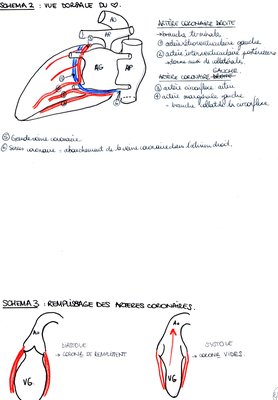 SCHEMA 2 : VUE DORSALE DU ♡.
ARTÈRE CORONAIRE DROITE
branche terminale
① artère rétroventriculaire gauche
② artère interventriculaire postérieure
donne aussi de collatérale
GAUCHE
ARTÈRE CORONAIRE DROITE
③ artère circonflexe
④ artère marginale gauche
→ branche collatérale la circonflexe
Ao
AP
AG
AD
⑤ Grande veine coronaire
⑥ Sinus coronaire = abouchement de la veine coronaire dans l'atrium droit.
SCHEMA 3 : REMPLISSAGE DES ARTERES CORONAIRES.
Ao
VG
DIASTOLE
→ CORONO SE REMPLISSENT
Ao
VG
SYSTOLE
→ CORONO VIDES.